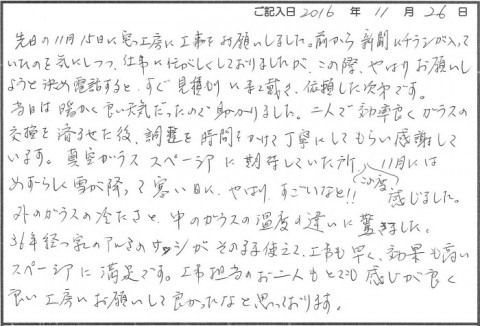 ご記入日 2016 年 11 月 26 日
先日の11月15日に窓工房に工事をお願いしました。前から新聞にチラシが入って
いたのを気にしつつ、仕事に忙がしくしておりましたが、この際、やはりお願いし
ようと決め電話すると、すぐ見積りに来て戴き、依頼した次第です。
当日は暖かく良い天気だったので助かりました。二人で効率良くガラスの
交換を済ませた後、調整を時間をかけて丁寧にしてもらい感謝して
います。真空ガラス スペーシアに期待していた所、11月には
めずらしく雪が降って寒い日に、やはり、すごいなと!! この度、感じました。
外のガラスの冷たさと、中のガラスの温度の違いに驚きました。
36年経つ家のアルミのサッシがそのまま使えて、工事も早く、効果も高い
スペーシアに満足です。工事担当のお二人もとても感じが良く
良い工房にお願いして良かったなと思っております。